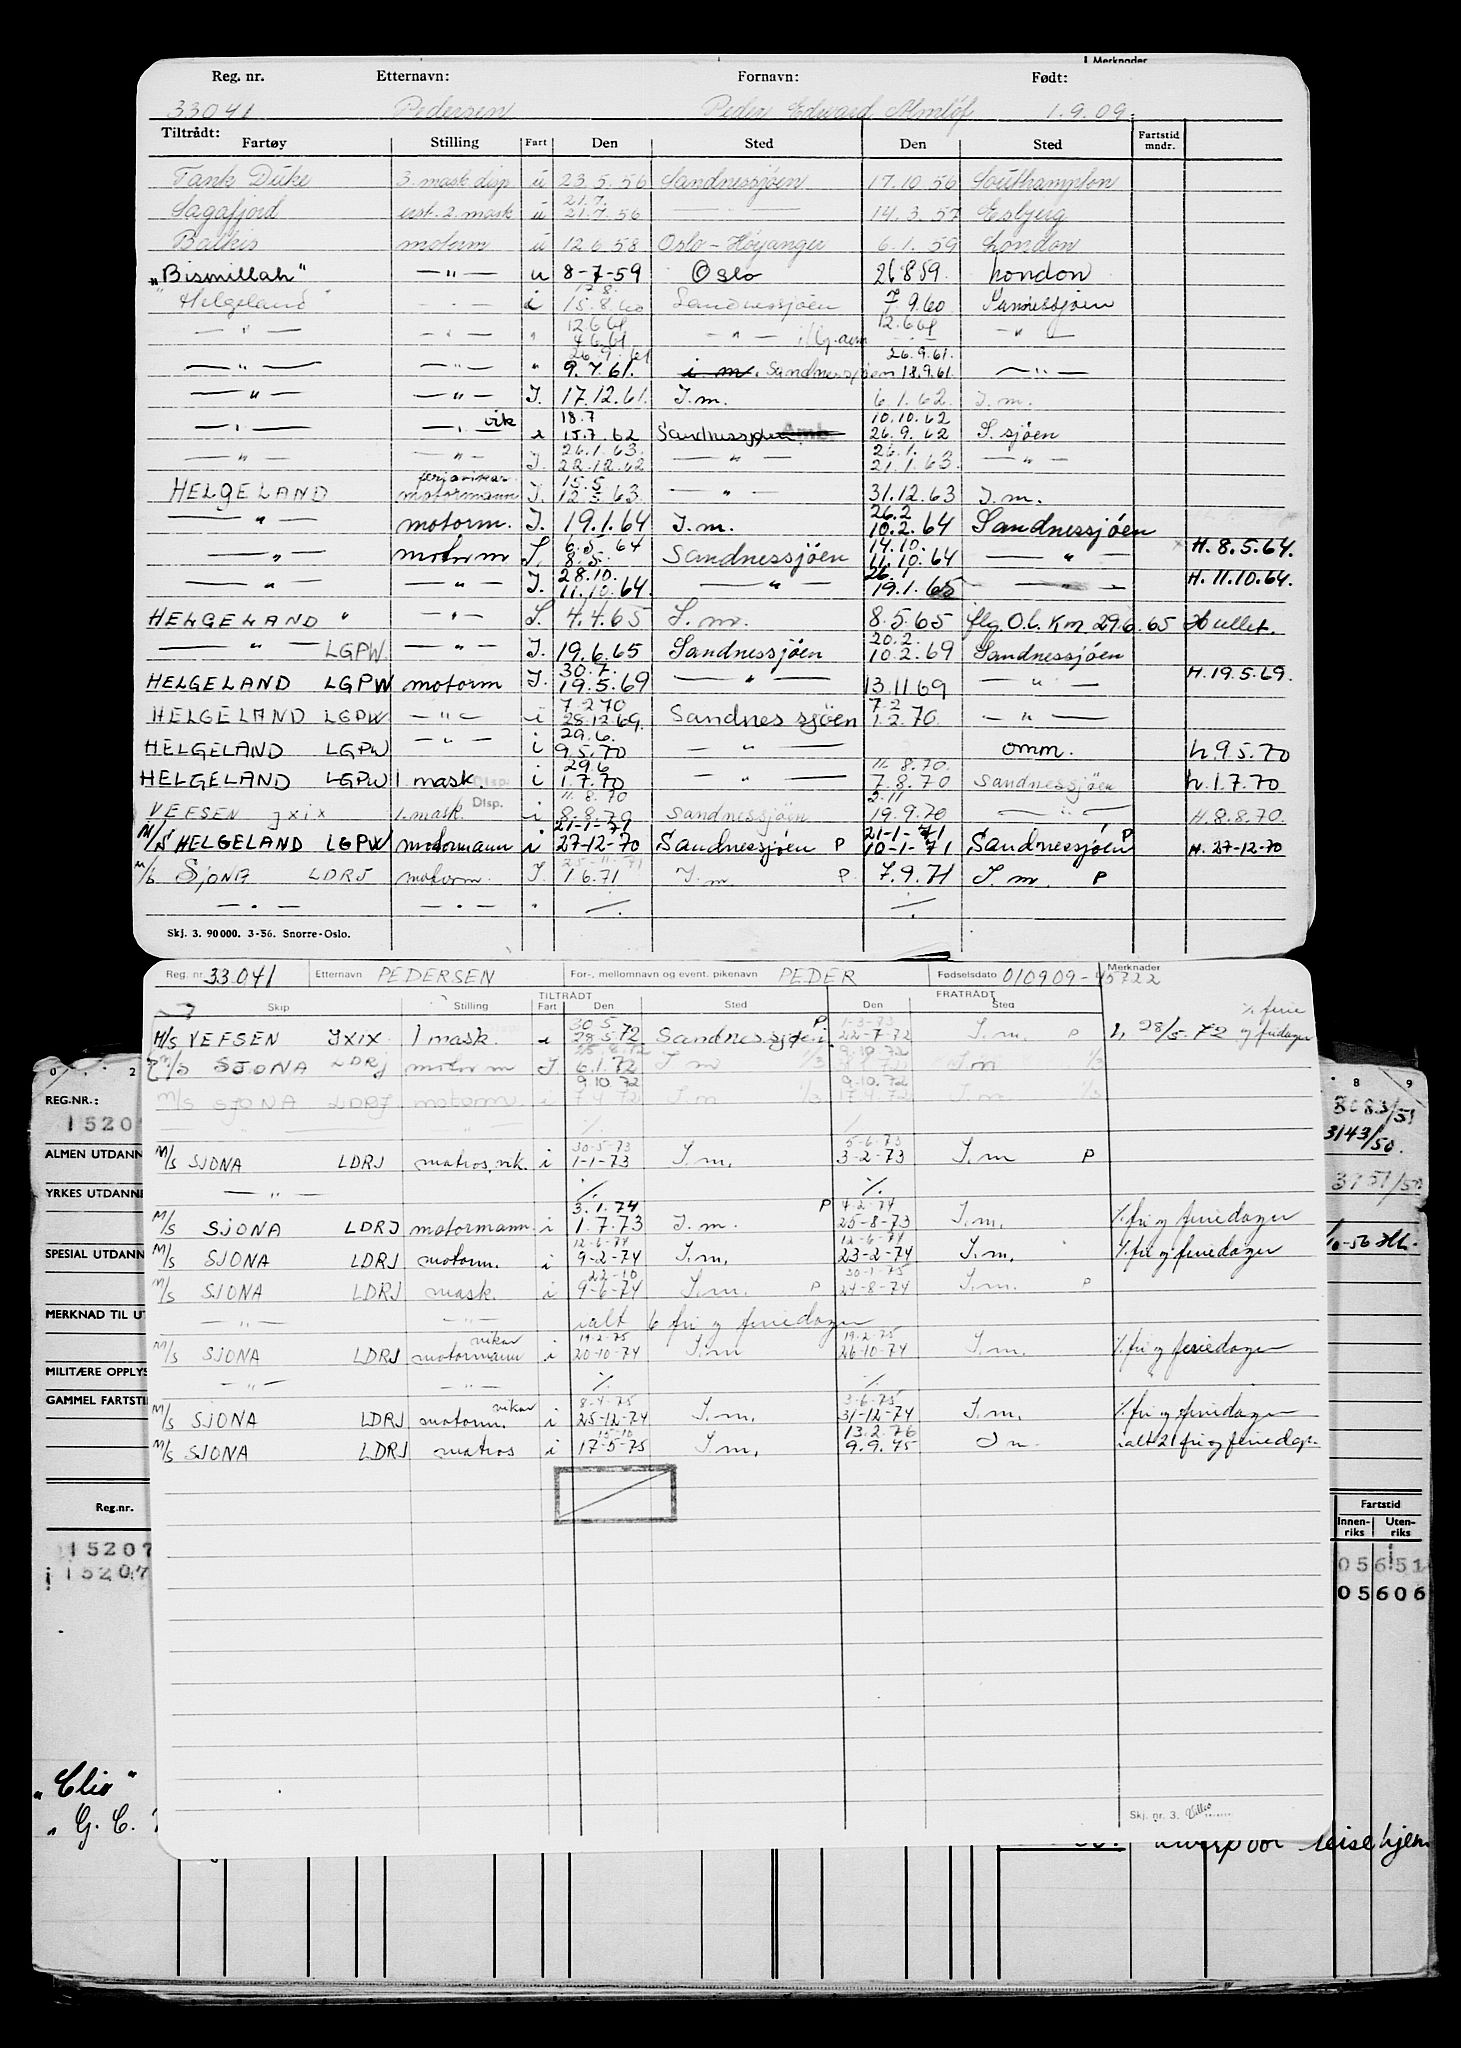 Merknader
Reg. nr. Etternavn: Fornavn: Født:
33041 Pedersen Peder Edvard Almlöf 1.9.09.
Tiltrådt:
Fartøy Stilling Fart Den Sted Den Sted Fartstid mndr.
Tank Duke 3. mask disp u 23.5.56 Sandnessjöen 17.10.56 Southampton
21.7.
Sagafjord ust. 2. mask u 21.7.56 — 14.3.57 Esbjerg
Balkis motorm u 12.6.58 Oslo - Höyanger 6.1.59 London
"Bismillah" — " — u 8-7-59 Oslo 26.8.59 London
17.8.
"Helgeland" — " — i 15.8.60 Sandnessjöen 7.9.60 Sannessjöen
12.6.61 12.6.61
— " — — " — " 4.6.61 — " — — " —
26.9.61 26.9.61.
— " — — " — " 9.7.61. i. m. Sandnessjöen 18.9.61 — " —
— " — — " — I. 17.12.61. I.m. 6.1.62. I.m.
vik 18.7 10.10.62
— " — — " — i 15.7.62 Sandnessjöen 26.9.62 S. sjöen
26.1.63. 26.1.
— " — — " — I. 22.12.62 — " — 21.1.63. — " —
ferjevikar 15.5
HELGELAND motormann I. 12.5.63. — " — 31.12.63 I.m.
26.2
— " — motorm. I. 19.1.64 I.m. 10.2.64 Sandnessjöen
6.5.64 14.10.
— " — motorm I. 8.5. Sandnessjöen 11.10.64 — " — H. 8.5.64.
28.10. 26.1
— " — — " — I. 11.10.64. — " — 19.1.65 — " — H. 11.10.64.
HELGELAND " — " — I. 4.4.65 I.m. 8.5.65 flg. O.l. Km 29.6.65 Hullet.
20.2.
— " — LGPW — " — I. 19.6.65 Sandnessjöen 10.2.69 Sandnessjöen
30.7.
HELGELAND LGPW motorm I. 19.5.69 — " — 13.11.69 — " — H. 19.5.69.
7.2.70 7.2
HELGELAND LGPW — " — i 28.12.69. Sandnessjöen 1.2.70. — " —
29.6.
HELGELAND LGPW — " — i 9.5.70 — " — omm. h. 9.5.70
29.6 11.8.70.
HELGELAND LGPW 1. mask. Disp. i 1.7.70 — " — 7.8.70 Sandnessjöen h. 1.7.70
11.8.70 2.11
VEFSEN JXIX 1. mask. Disp. i 8.8.70 Sandnessjöen 19.9.70 — " — H. 8.8.70.
21-1-71 21-1-71
M/S HELGELAND LGPW motormann i 27-12-70 Sandnessjøen P 10-1-71 Sandnessjøen P H. 27-12-70
25-11-71
M/S Sjona LDRJ motorm. I. 1.6.71 I.m. P. 7.9.71 I.m. P
— " — — " — " ./. ./.
Skj. 3. 90000. 3-56. Snorre-Oslo.
Reg. nr. 33.041 Etternavn PEDERSEN For-, mellomnavn og event. pikenavn PEDER Fødselsdato 010909-45722 Merknader
TILTRÅDT FRATRÅDT
Skip Stilling Fart Den Sted Den Sted
30.5. P 1-3-73 % ferie
M/S VEFSEN JXIX 1 mask. i 28.5.72 Sandnessjøen 22-7-72 I.m. P 1, 28/5-72 og fridager
25.8.72 9.10.72
M/S SJONA LDRJ motorm I 6.1.72 I m 1/3 I m 1/3
9.10.72 9.10.72
M/S SJONA LDRJ motorm i 7.9.72 I.m 1/3 17.9.72 I.m. 1/3
./. /
30-5-73 5-6-73
M/S SJONA LDRJ matros, vik. i 1-1-73 I.m, 3-2-73 I.m P
— " — ./. ./.
3.1.74 P 4-2-74
M/S SJONA LDRJ motormann i 1.7.73 I.m. 25-8-73 I.m, ./. fri og feriedager
12-6-74 12-6-74
M/S SJONA LDRJ motorm. i 9-2-74 I.m, 23-2-74 I.m, ./. fri og feriedager
22-10 30-1-75
M/S SJONA LDRJ mask. i 9-6-74 I.m. P 24-8-74 I.m. P
— " — — " — ialt 6 fri og feriedager
vikar 19-2-75 19.2.75
M/S SJONA LDRJ motormann i 20-10-74 I.m 26-10-74 I.m. ./. fri og feriedager
— " — — " — ./. ./.
vikar 8-4-75 3-6-75
M/S SJONA LDRJ motorm. i 25-12-74 I.m, 31-12-74 I.m, ./. fri og feriedager
15-10 13.2.76
M/S SJONA LDRJ matros i 17-5-75 I.m, 9.9.45 I m. ialt 21 fri og feriedg.
Skj. nr. 3.
0 . . 2
REG.NR.:
1520
ALMEN UTDANN
YRKES UTDANNE
SPESIAL UTDANN
MERKNAD TIL UT
MILITÆRE OPPLYS
GAMMEL FARTSTID
Reg.nr.
15207
15207
"Clio"
" G. C.
8 9
8083/51
3143/50.
3757/50
/10-56 Hl.
Fartstid
Innen-riks Uten-riks
05651
05606
Liverpool reise hjem